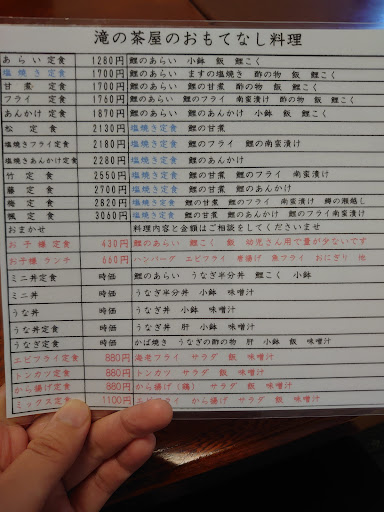 滝の茶屋のおもてなし料理
あらい定食 1280円 鯉のあらい 小鉢 飯 鯉こく
塩焼き定食 1700円 鯉のあらい ますの塩焼き 酢の物 飯 鯉こく
甘煮 定食 1700円 鯉のあらい 鯉の甘煮 酢の物 飯 鯉こく
フライ 定食 1760円 鯉のあらい 鯉のフライ 南蛮漬け 飯 鯉こく
あんかけ定食 1870円 鯉のあらい 鯉のあんかけ 小鉢 飯 鯉こく
松 定 食 2130円 塩焼き定食 鯉の甘煮
塩焼きフライ定食 2180円 塩焼き定食 鯉のフライ 鯉の南蛮漬け
塩焼きあんかけ定食 2280円 塩焼き定食 鯉のあんかけ
竹 定 食 2550円 塩焼き定食 鯉の甘煮 鯉のフライ 南蛮漬け
藤 定 食 2700円 塩焼き定食 鯉の甘煮 鯉のあんかけ
梅 定 食 2820円 塩焼き定食 鯉の甘煮 鯉のフライ 南蛮漬け 鱒の瀬越し
楓 定 食 3060円 塩焼き定食 鯉の甘煮 鯉のあんかけ 鯉のフライ南蛮漬け
おまかせ 料理内容と金額はご相談をしてくださいませ
お子様定食 430円 鯉のあらい 鯉こく 飯 幼児さん用で量が少ないです
お子様ランチ 660円 ハンバーグ エビフライ 唐揚げ 魚フライ おにぎり 他
ミニ丼定食 時価 鯉のあらい うなぎ半分丼 鯉こく 小鉢
ミニ丼 時価 うなぎ半分丼 小鉢 味噌汁
うな丼 時価 うなぎ丼 小鉢 味噌汁
うな丼定食 時価 うなぎ丼 肝 小鉢 味噌汁
うなぎ定食 時価 かば焼き うなぎの酢の物 肝 小鉢 飯 味噌汁
エビフライ定食 880円 海老フライ サラダ 飯 味噌汁
トンカツ定食 880円 トンカツ サラダ 飯 味噌汁
から揚げ定食 880円 から揚げ(鶏) サラダ 飯 味噌汁
ミックス定食 1100円 エビフライ から揚げ サラダ 飯 味噌汁